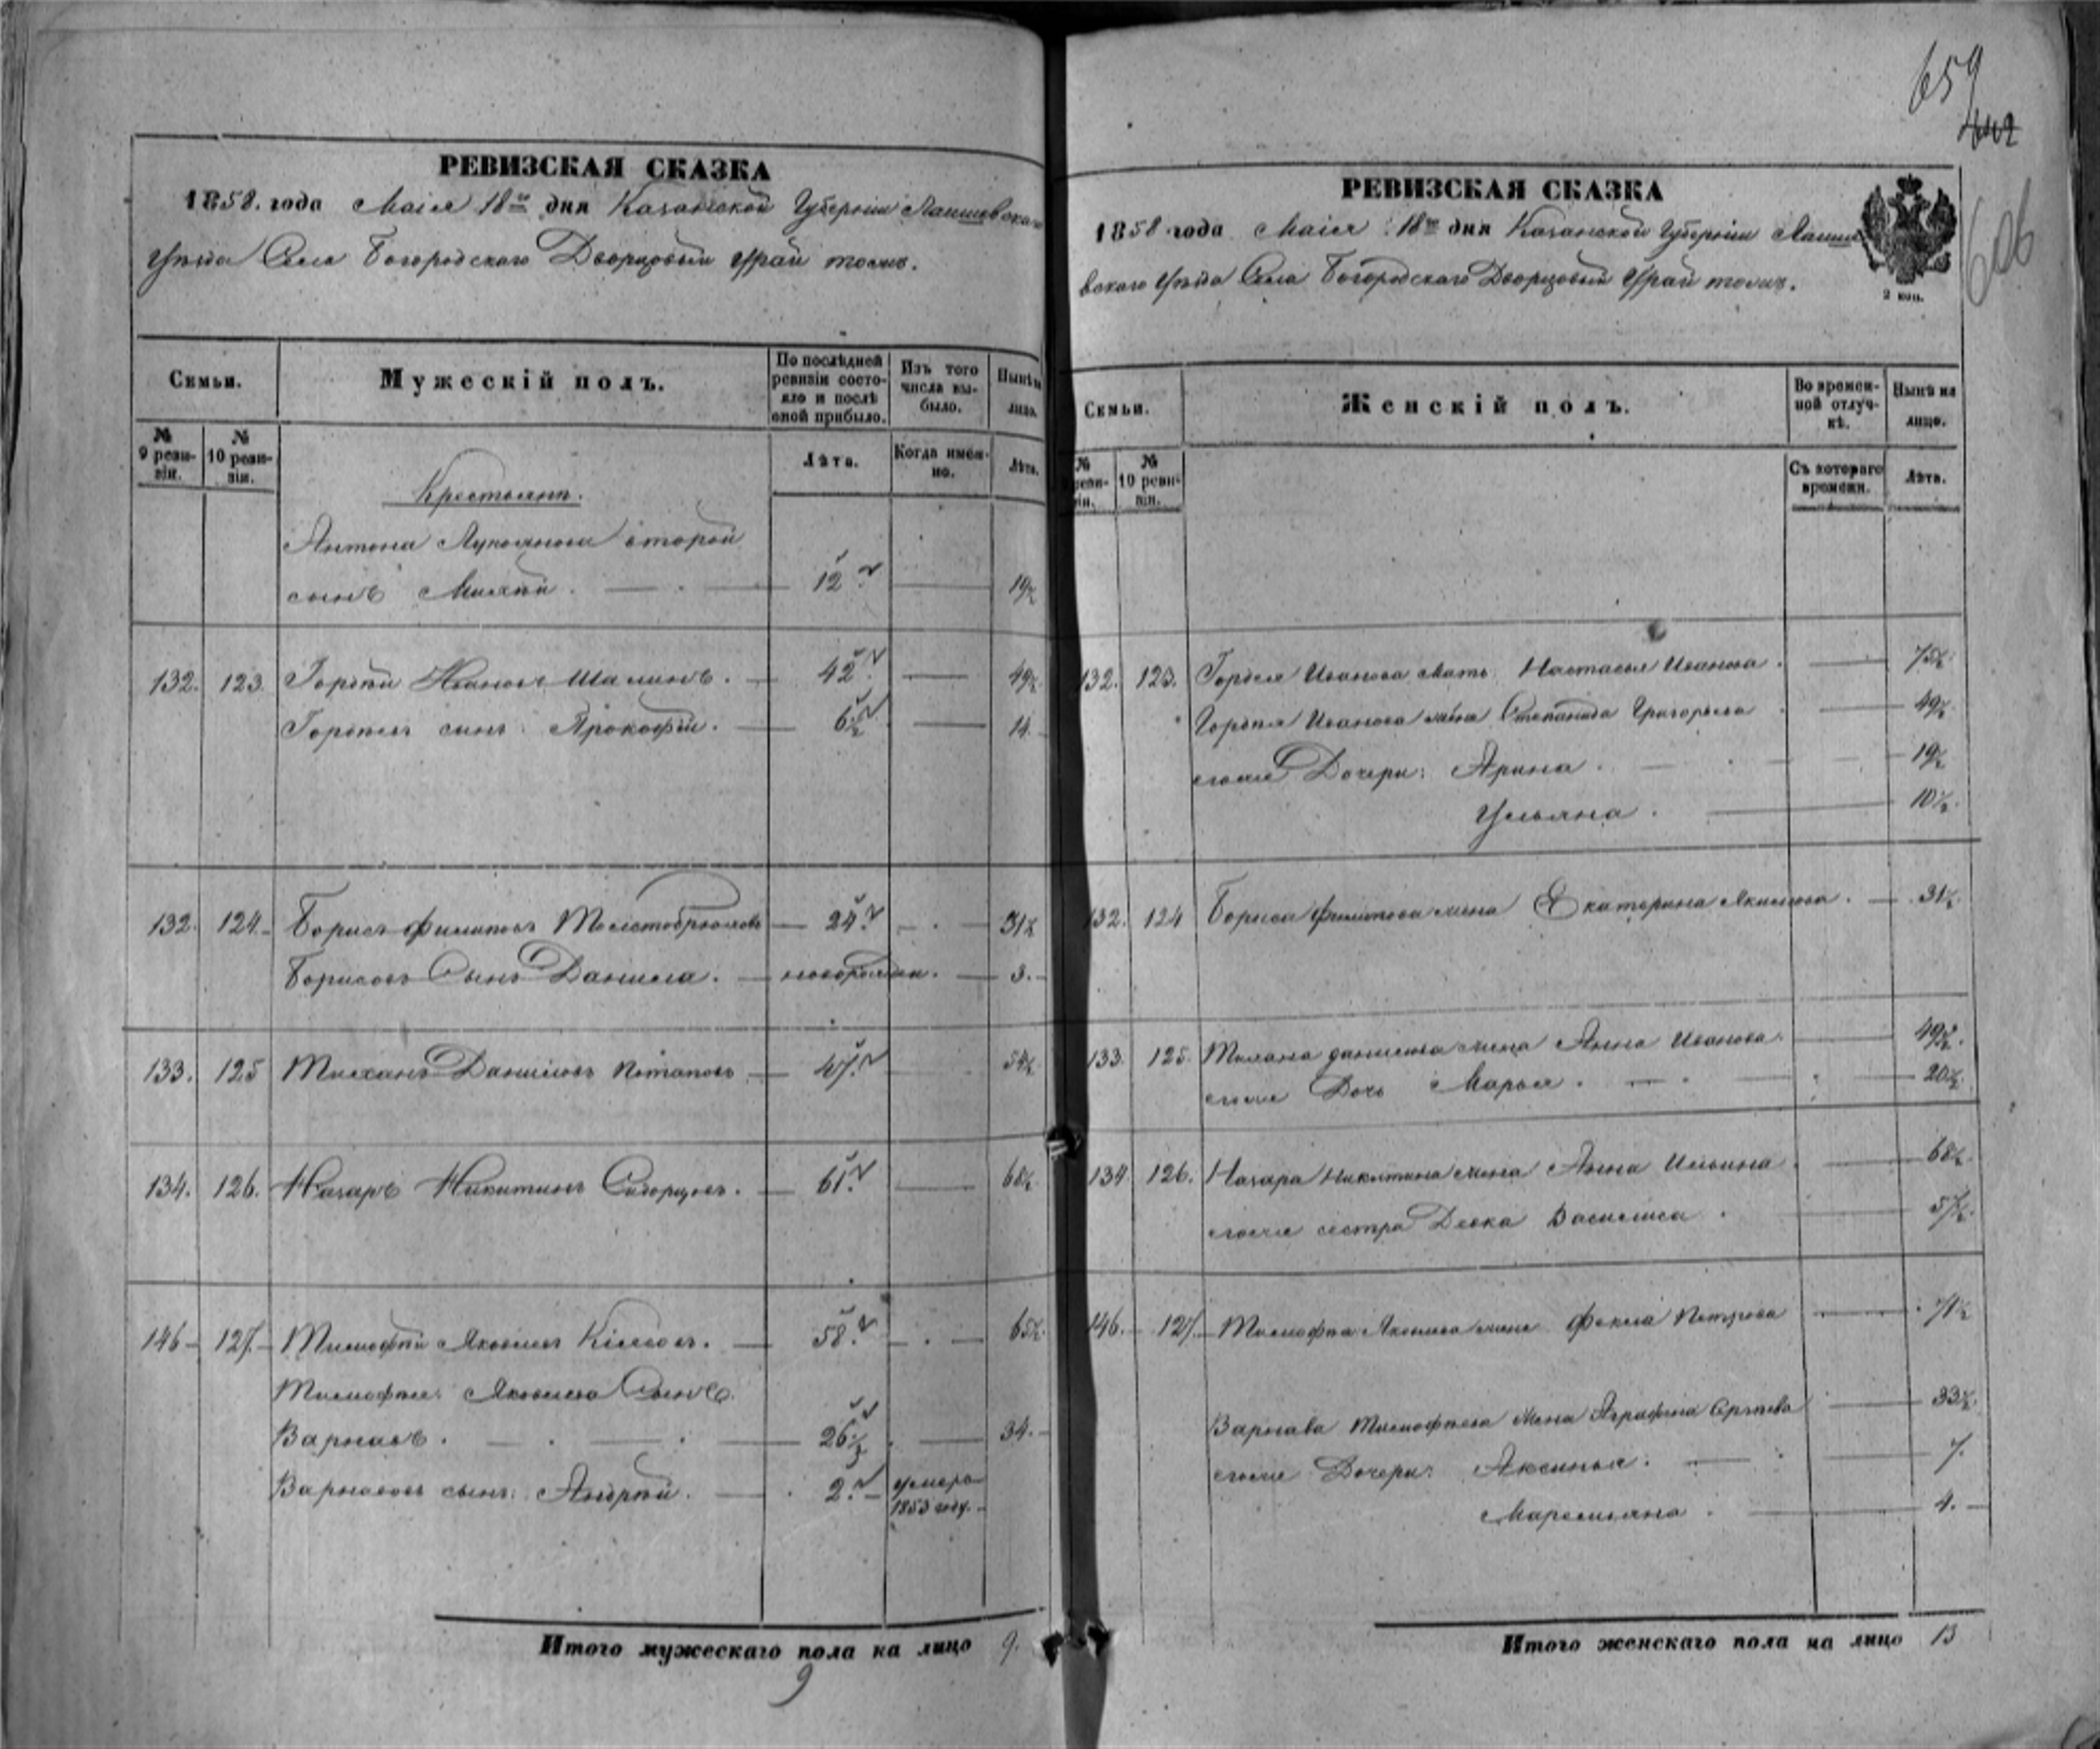 659
442
606
РЕВИЗСКАЯ СКАЗКА
1858. года Маія 18го дня Казанской Губерніи Лаишевскаго
Уѣзда Села Богородскаго Дворцовый Урай тожъ.
Семьи.
Мужескій полъ.
По послѣдней ревизіи состояло и послѣ оной прибыло.
Изъ того числа выбыло.
Нынѣ на лицо.
№ 9 ревизіи.
№ 10 ревизіи.
Лѣта.
Когда именно.
Лѣта.
Крестьянъ.
Антона Лукоянова второй
сынъ Михѣй. 12 19½
132. 123. Гордѣй Ивановъ Шалинъ. 42 49½
Гордѣевъ сынъ Прокофій. 6½ 14
132. 124. Борисъ Филиповъ Толстобрюховъ 24 31½
Борисовъ Сынъ Данила. новорожден. 3.
133. 125 Данииловъ Потаповъ 47. 54½
134. 126. Назаръ Никитинъ Сидорцовъ. 61. 68½
146 127. Тимофѣй Яковлевъ 58. 65½
Тимофея Яковлева Сынъ
Варнавъ. 26½ 34.
Варнавовъ сынъ Андрѣй. 2. умеръ
1853 году.
Итого мужескаго пола на лицо 9.
9
РЕВИЗСКАЯ СКАЗКА
1858 года Маія 18го дня Казанской Губерніи Лаише
вскаго Уѣзда Села Богородскаго Дворцовый Урай тожъ.
2 коп.
Семьи.
Женскій полъ.
Во временной отлучкѣ.
Нынѣ на лицо.
№ ревизіи.
№ 10 ревизіи.
Съ котораго времени.
Лѣта.
132. 123. Гордея Иванова Мать Настасья Иванова. 75½
Гордѣя Иванова жена Степанида Григорьева 49½
егоже Дочери: Арина. 19½
Ульяна. 10½.
132. 124 Бориса Филипова жена Екатерина Якимова. 31½.
133. 125. данилова жена Анна Иванова. 49½.
егоже Дочь Марья. 20½.
134 126. Назара Никитина жена Анна Ильина 68½.
егоже сестра Девка Василиса. 57½.
146. 127. Тимофѣя Яковлева жена Фекла Петрова 71½
Варнава Тимофѣева жена Аграфена Сергѣева 33½.
егоже Дочери: Аксинья. 7.
Маремьяна. 4.
Итого женскаго пола на лицо 13